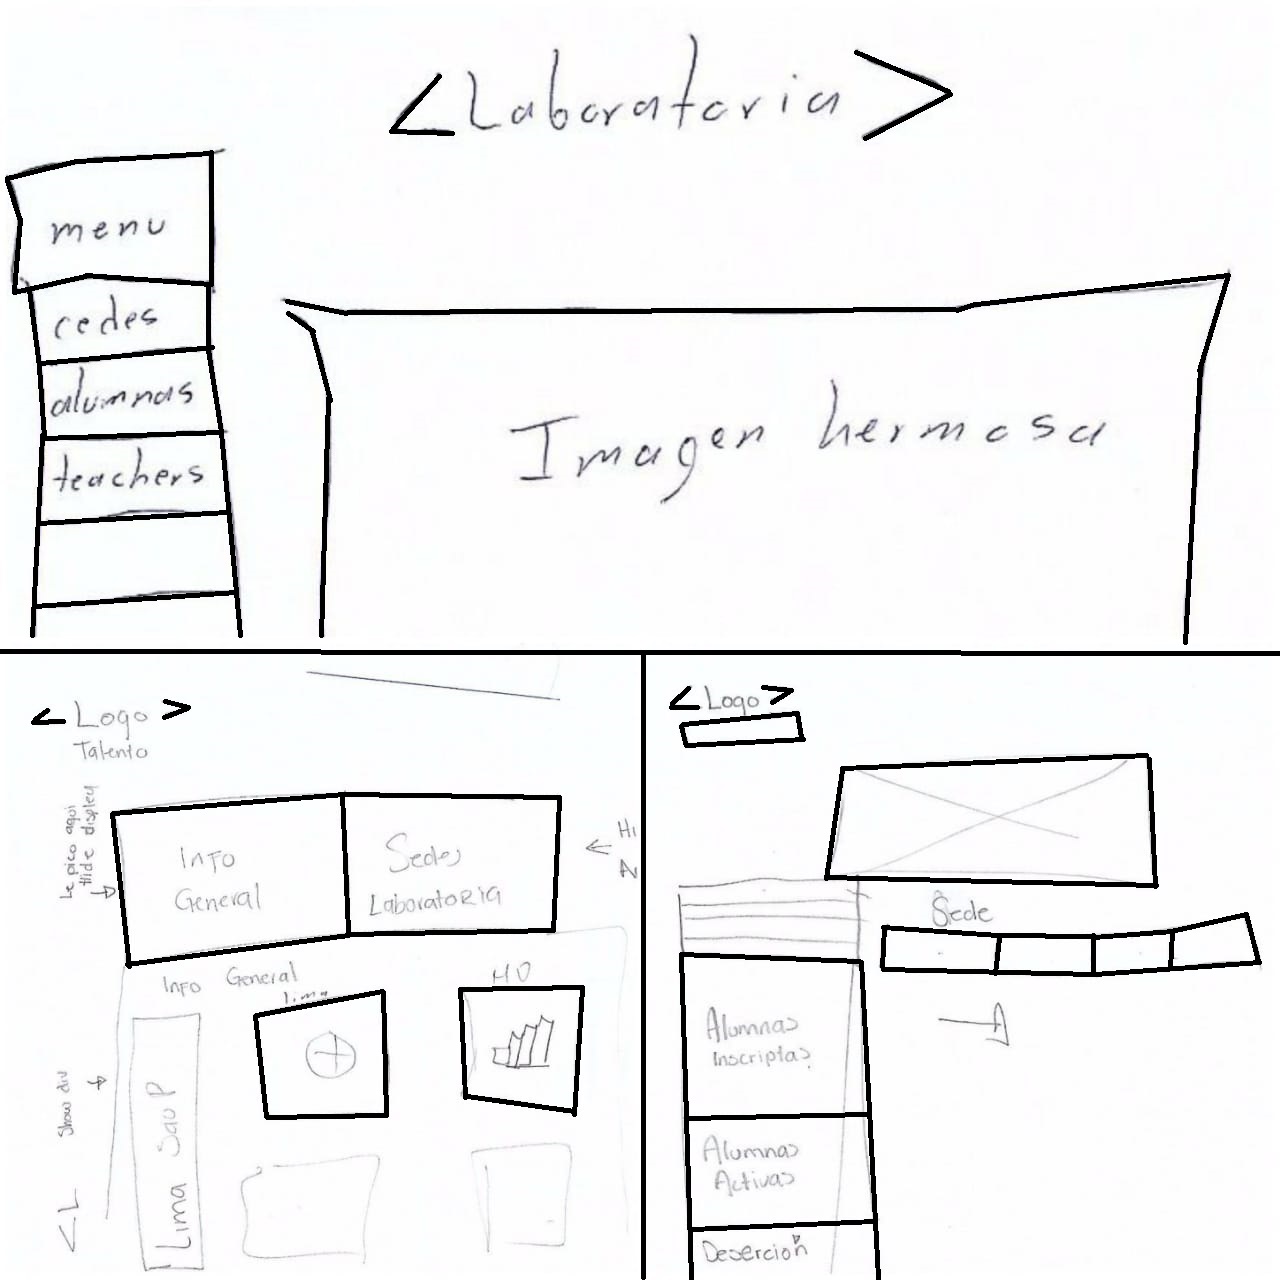 <Laboratoria>
menu
cedes
alumnas
teachers
Imagen hermosa
<Logo>
Talento
Le pico aqui
Hide display
Info
General
Sedes
Laboratoria
Hi
Info General
Lima
Show div
Lima Sao P
<L
<Logo>
Sede
Alumnas
Inscriptas
Alumnas
Activas
Desercion